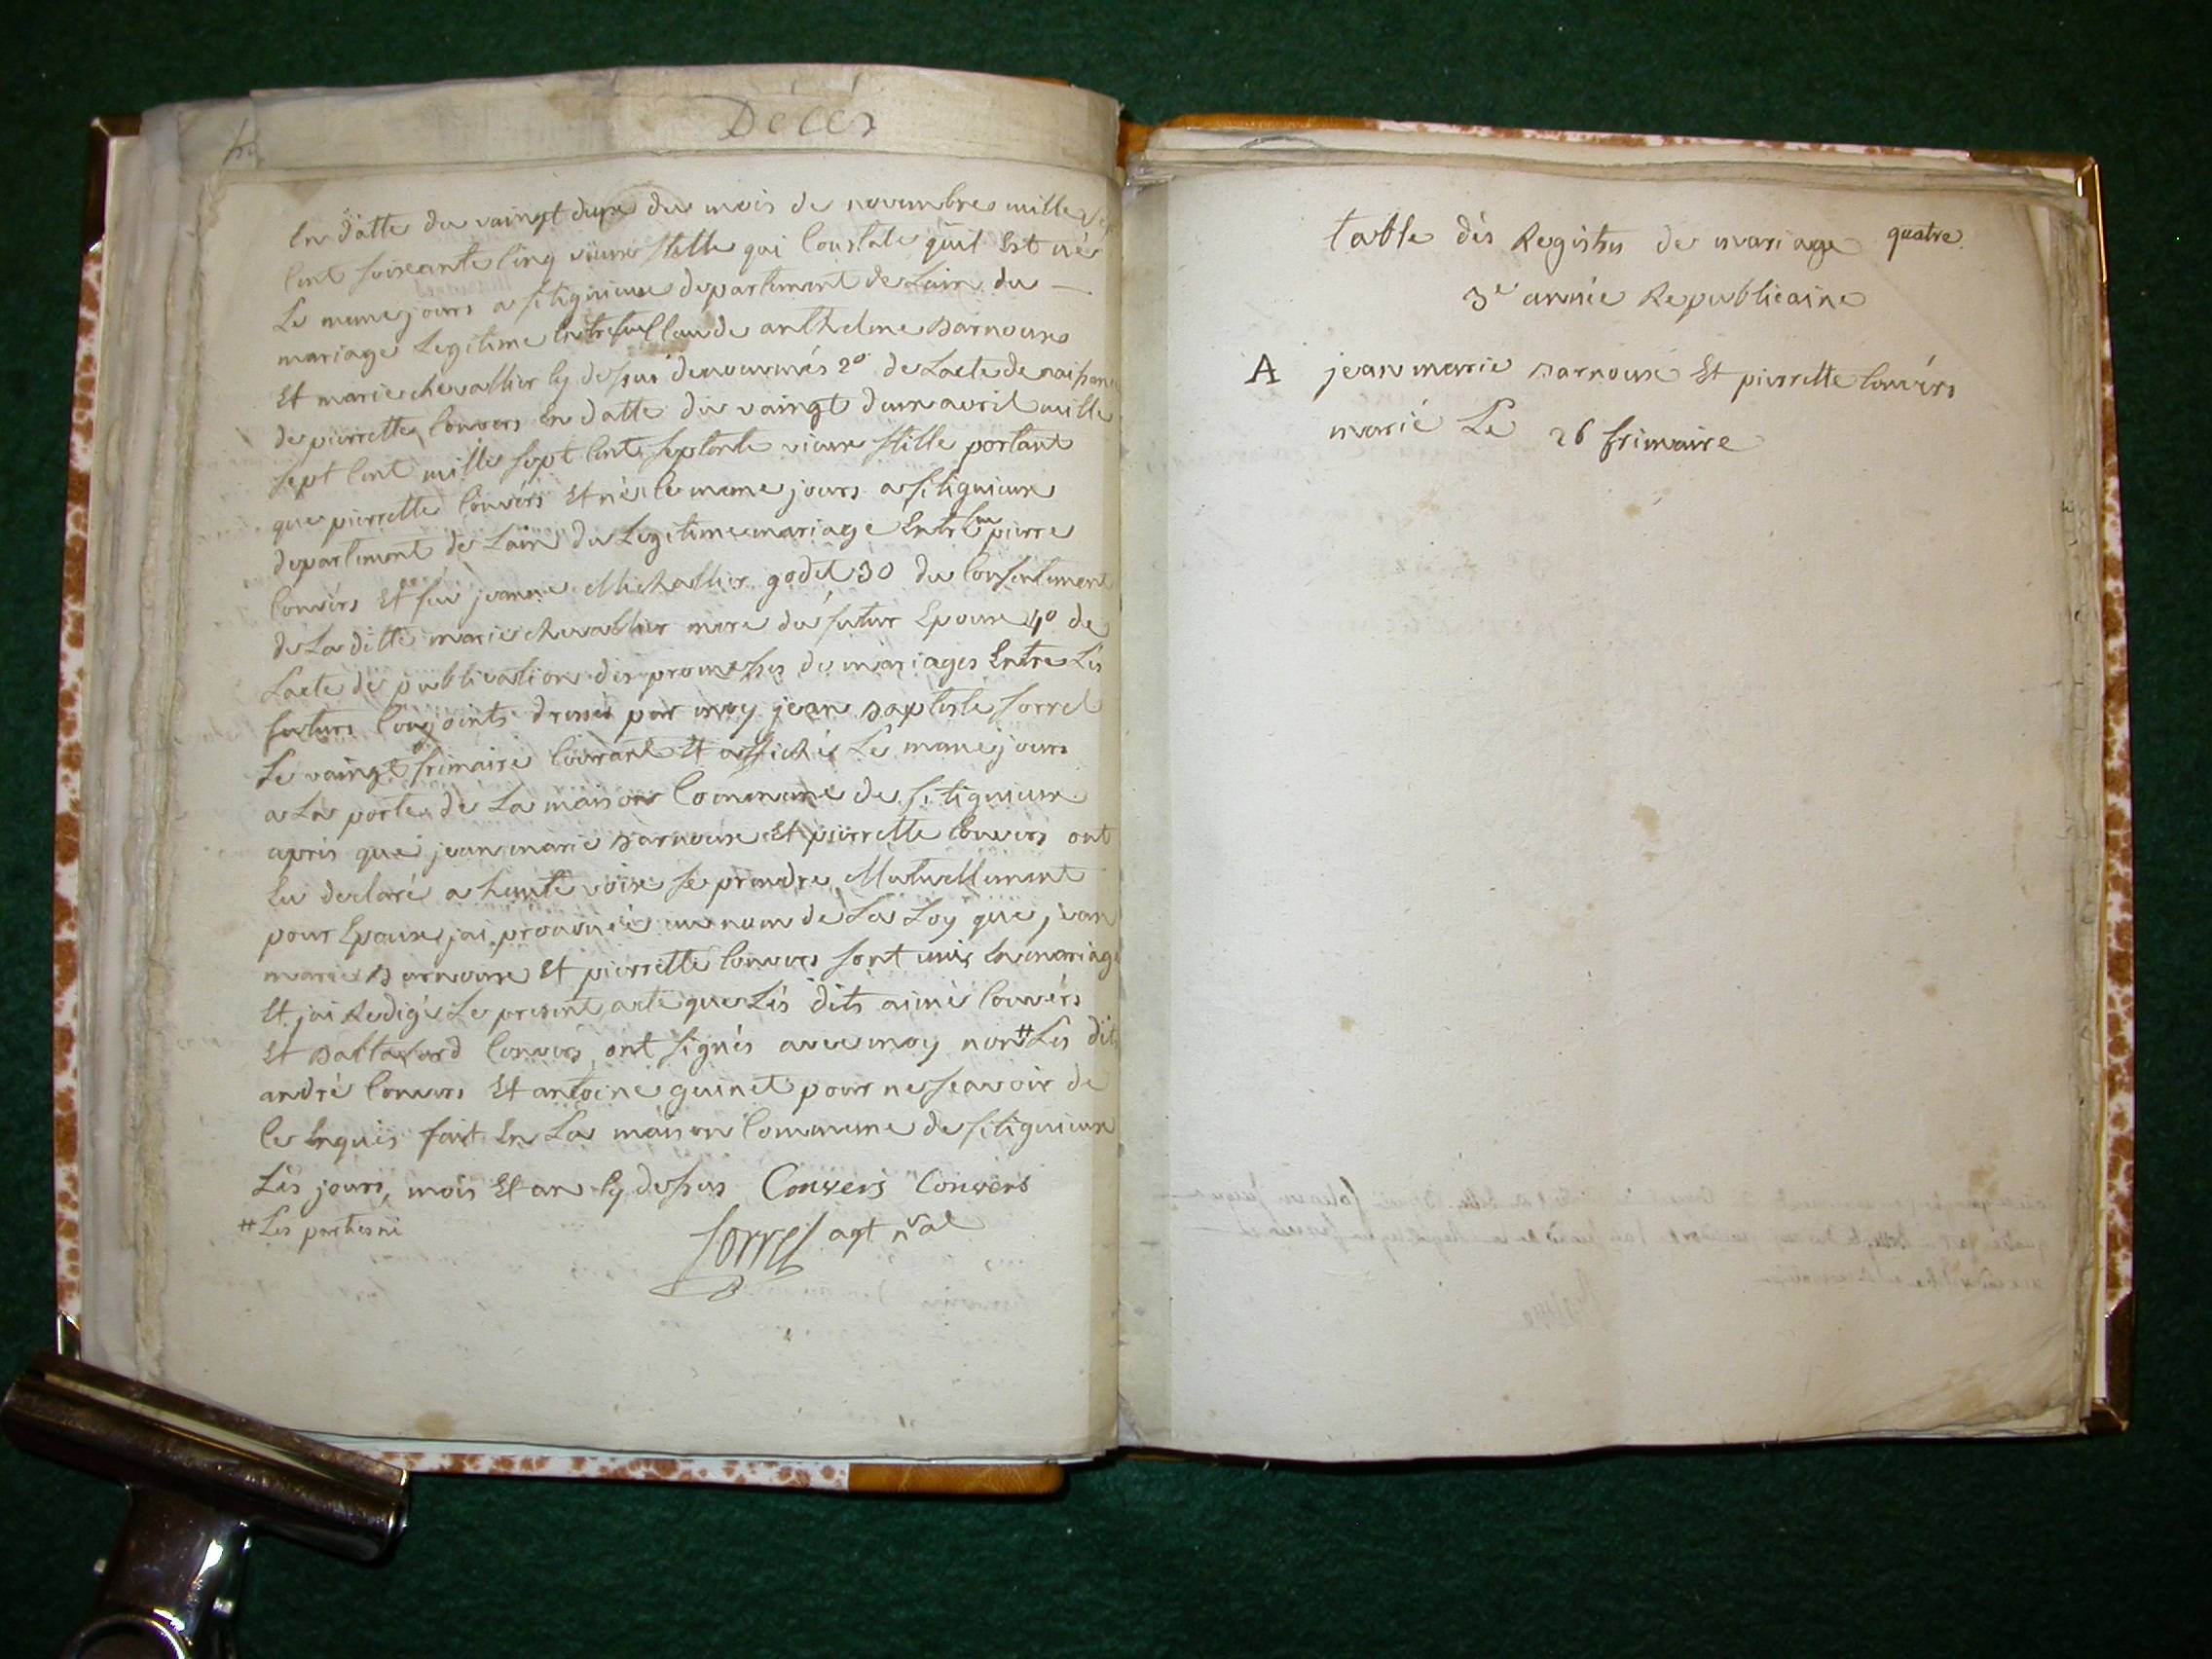 Décés
En datte du vaingt deux du mois de novembres mille sept
Cent soixante Cinq vieux stille qui Constate quil Est né
Le meme jours a sitignieux departement de Lain du
mariage Legitime Entre feu Claude anthelme Darnoux
Et marie chevallier Cy dessus dénommés 2º de Lacte de naissance
de pierrette Convers En datte du vaingt deux avril mille
sept Cent mille sept Cent septente vieux stille portant
que pierrette Convérs Et née le meme jours a sitignieux
departement de Lain du Legitime mariage Entre pierre
Convérs Et feu jeanne Michallier godet 30 du Consentement
de La ditte marie chevallier mere du futur Epoux 40 de
Lacte de publication des promesses de mariages Entre Les
futurs Conjoints dressé par moy jean Baptiste sorrel
Le vaingt frimaire Courant Et affiché Le meme jours
a La porte de La maison Commune de sitignieux
apris que jean marie Darnoux Et pierrette Convers ont
Eu declaré a haute voix se prendre Mutuellement
pour Epoux jai prononcé au nom de La Loy que jean
marie Darnoux Et pierrette Convers sont unis En mariage
Et jai Redigé Le present acte que Lés dits aimé Convérs
Et Baltazard Convers ont signés avec moy non # Les dits
andré Convers Et antoine guinet pour ne sçavoir de
Ce Enquis fait En La maison Commune de sitignieux
Lés jours, mois Et an Cy dessus Convers Convers
# Les parties ni
Sorrel agt nal
table dés Registres de mariage quatre.
3e année Republicaine
A jean marie Darnoux Et pierrette Convérs
marié Le 26 frimaire